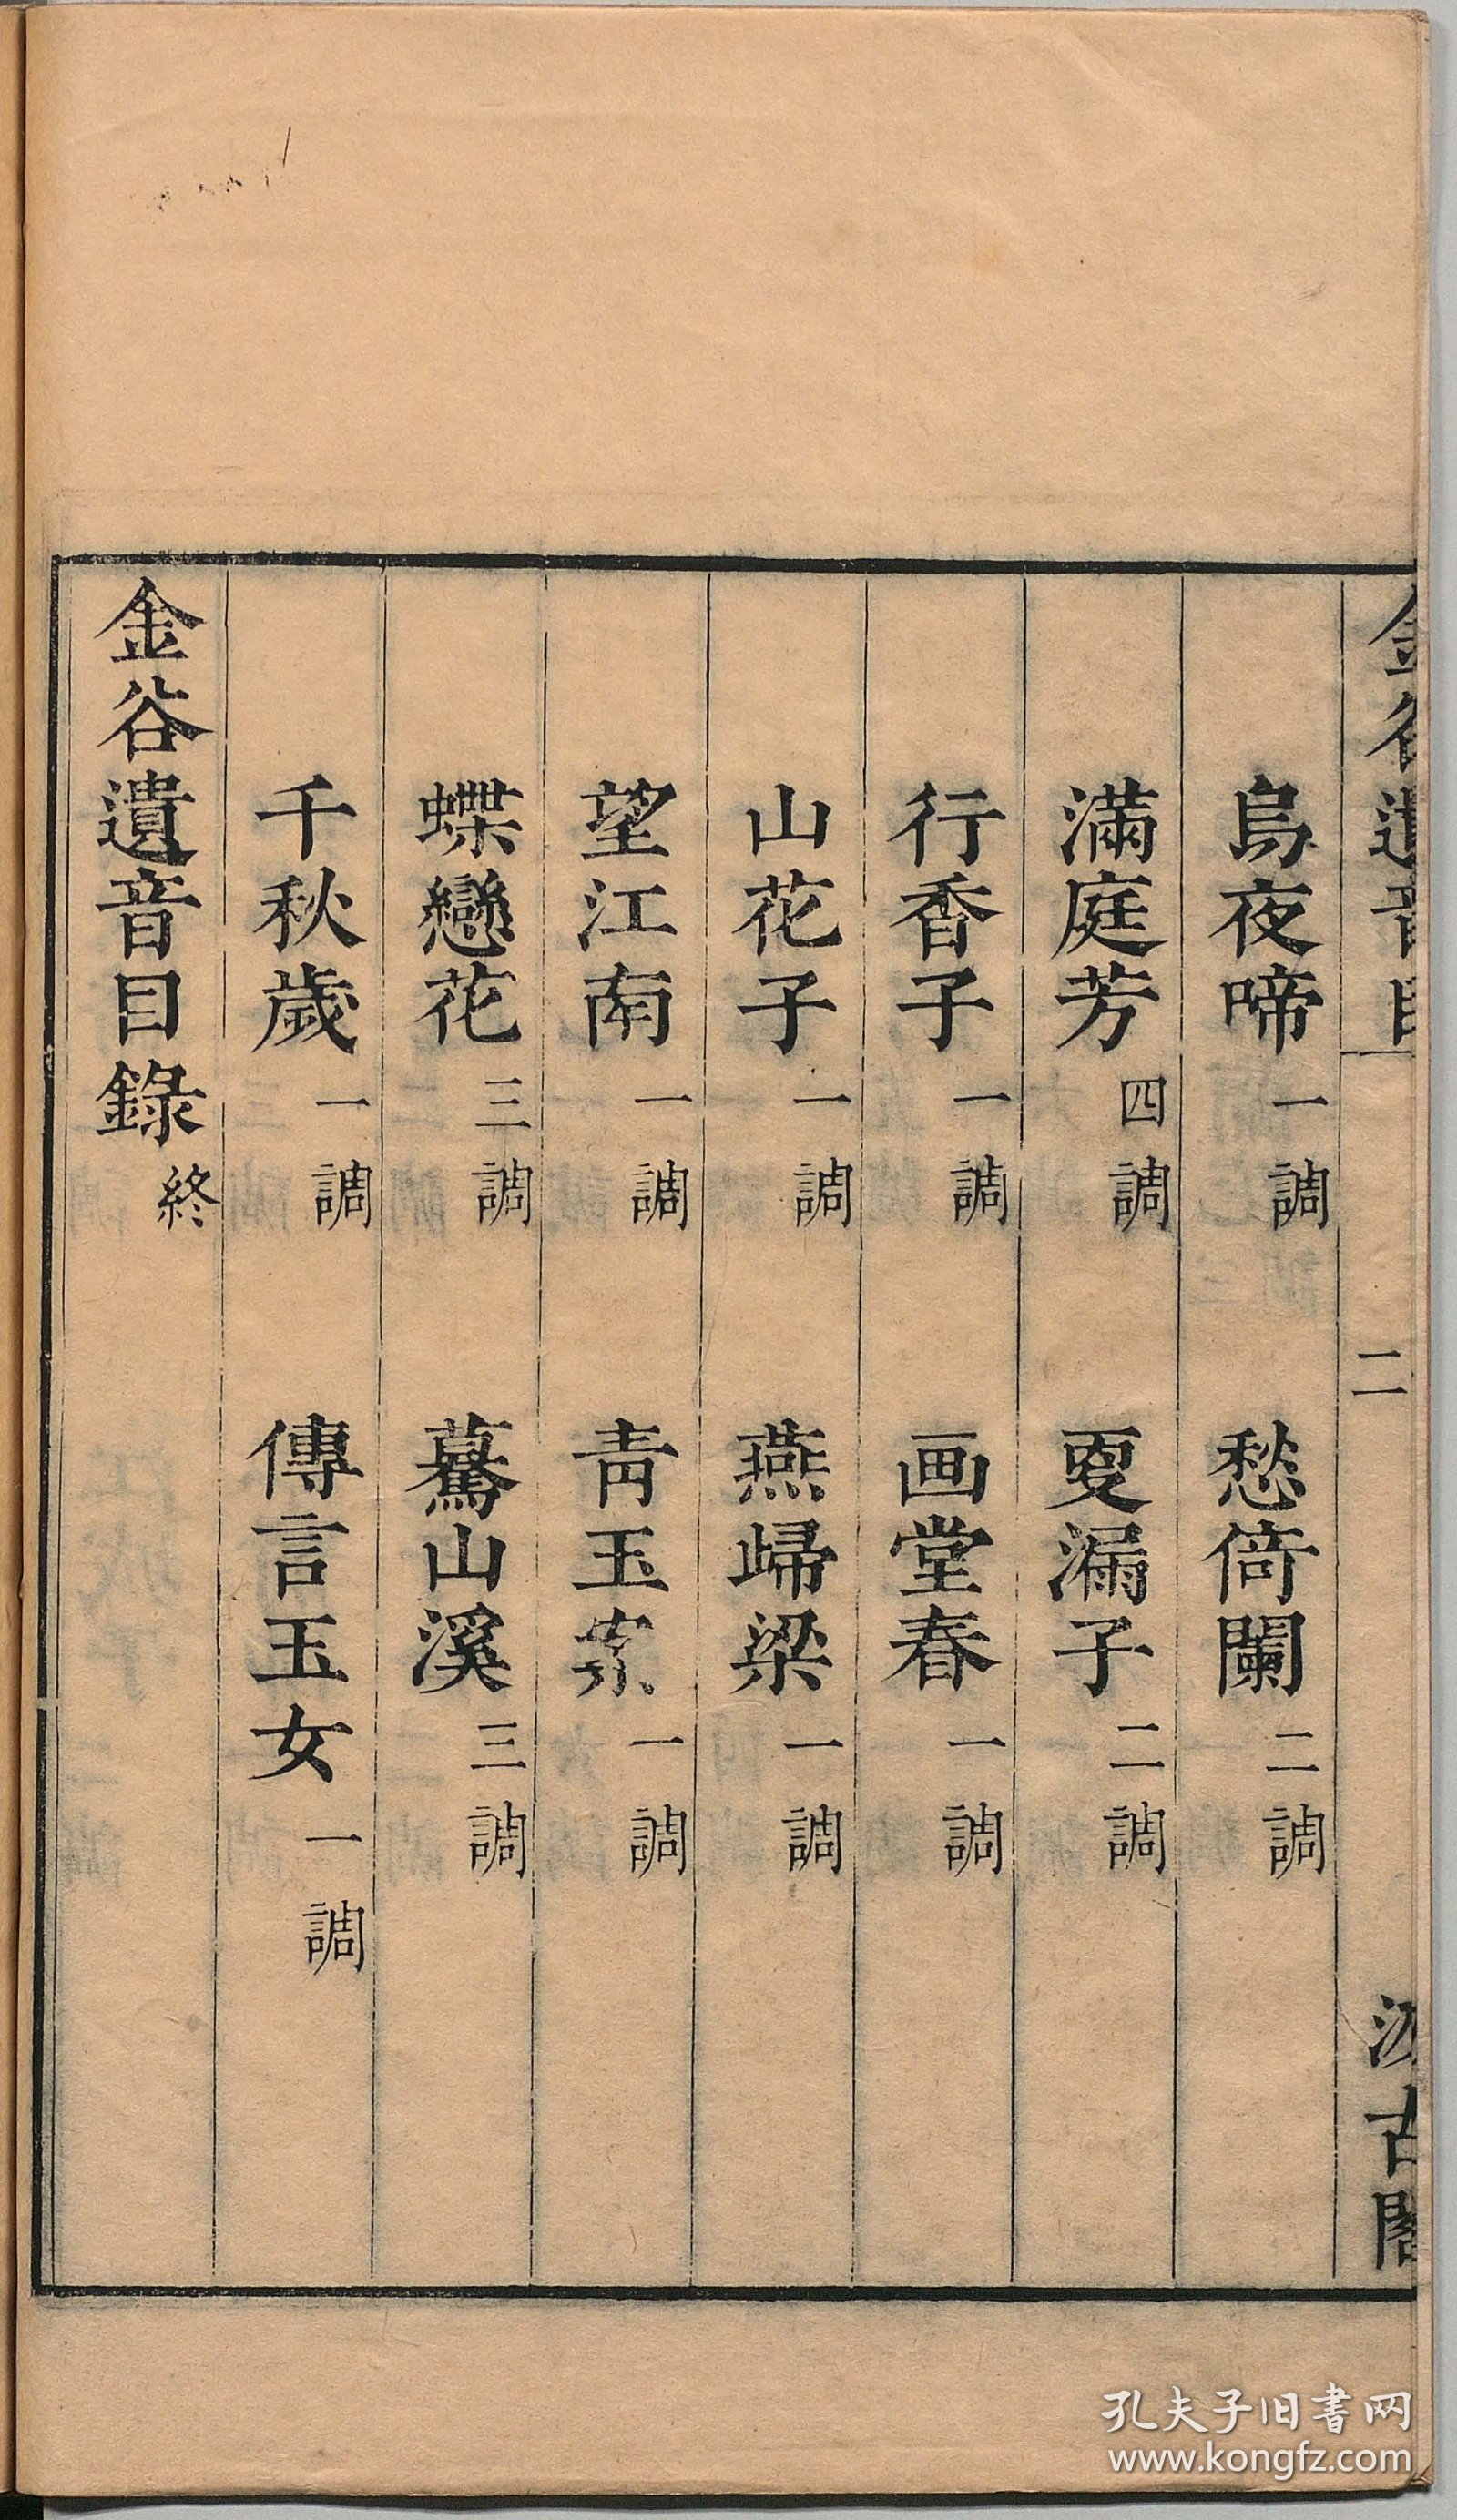 金谷遺音目 二 汲古閣
烏夜啼 一調 愁倚闌 二調
滿庭芳 四調 更漏子 二調
行香子 一調 画堂春 一調
山花子 一調 燕歸梁 一調
望江南 一調 青玉案 一調
蝶戀花 三調 驀山溪 三調
千秋歲 一調 傳言玉女 一調
金谷遺音目錄 終
孔夫子旧书网
www.kongfz.com